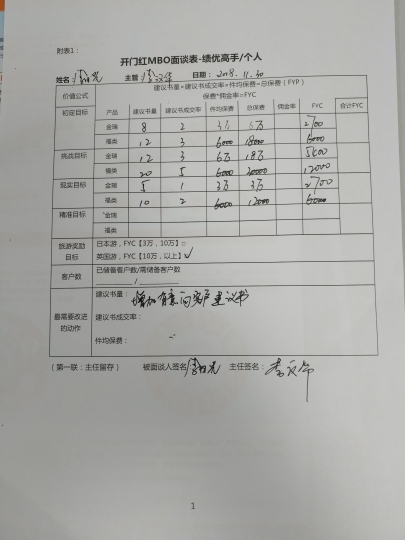 附表1：
开门红MBO面谈表-绩优高手/个人
姓名 主管 日期：2018.11.30
价值公式 建议书量×建议书成交率×件均保费=总保费（FYP）
保费*佣金率=FYC
初定目标 产品 建议书量 建议书成交率 件均保费 总保费 佣金率 FYC 合计FYC
金瑞 8 2 3万 6万 2700
福类 12 3 6000 18000 6000
挑战目标 金瑞 12 3 6万 18万 5400
福类 20 5 6000 30000 12000
现实目标 金瑞 5 1 3万 3万 2700
福类 10 2 6000 12000 6000
精准目标 金瑞
福类
旅游奖励 日本游，FYC【3万，10万】□
目标 英国游，FYC【10万，以上】✓
客户数 已储备客户数/需储备客户数
/
最需要改进的动作 建议书量：增加有意向客户建议书
建议书成交率：
件均保费：
（第一联：主任留存） 被面谈人签名： 主任签名：
1